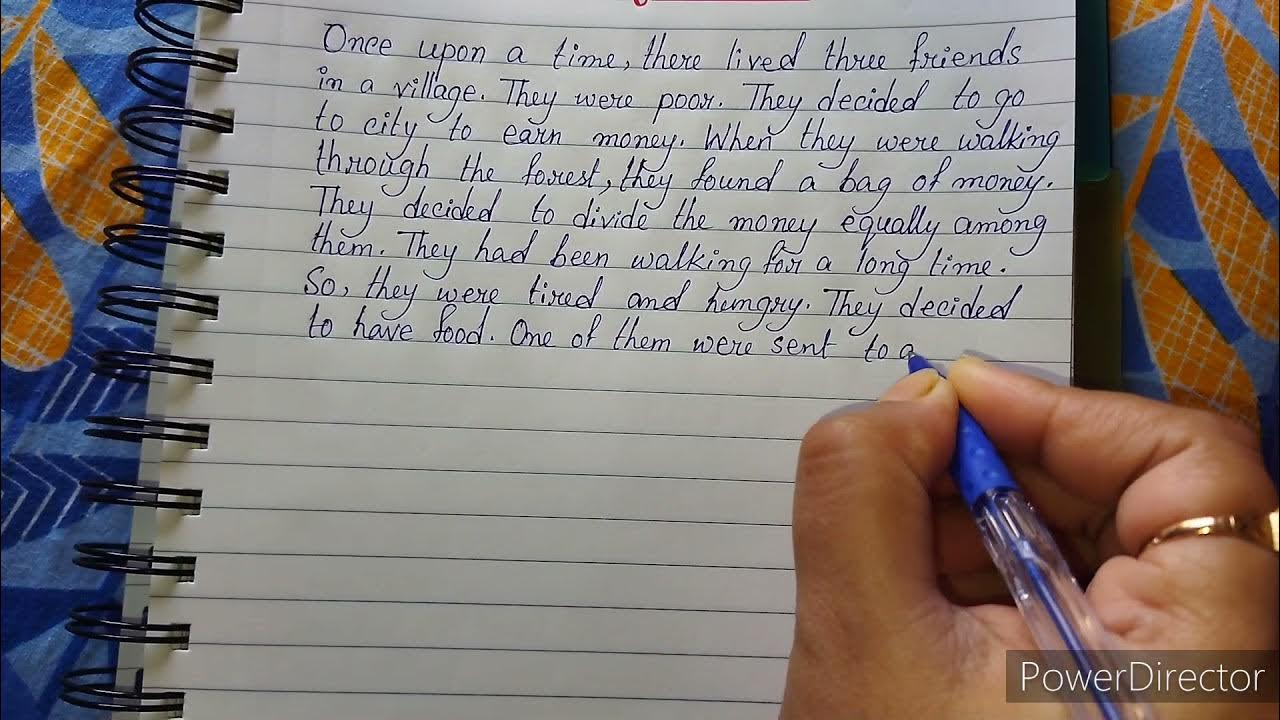 Once upon a time, there lived three friends
in a village. They were poor. They decided to go
to city to earn money. When they were walking
through the forest, they found a bag of money.
They decided to divide the money equally among
them. They had been walking for a long time.
So, they were tired and hungry. They decided
to have food. One of them were sent to a
PowerDirector